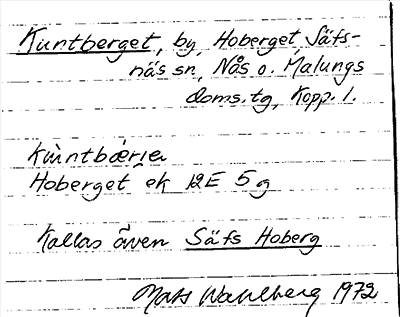 Kuntberget, by, Hoberget, Säfs-
näs sn, Nås o. Malungs
doms.tg, Kopp. l.
kùntbær̀je
Hoberget ek 12E 5g
Kallas även Säfs Hoberg
Mats Wahlberg 1972